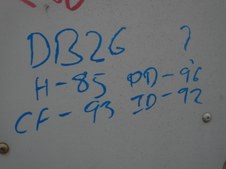 DB26 ?
H-85 DD-96
CF-93 ID-92